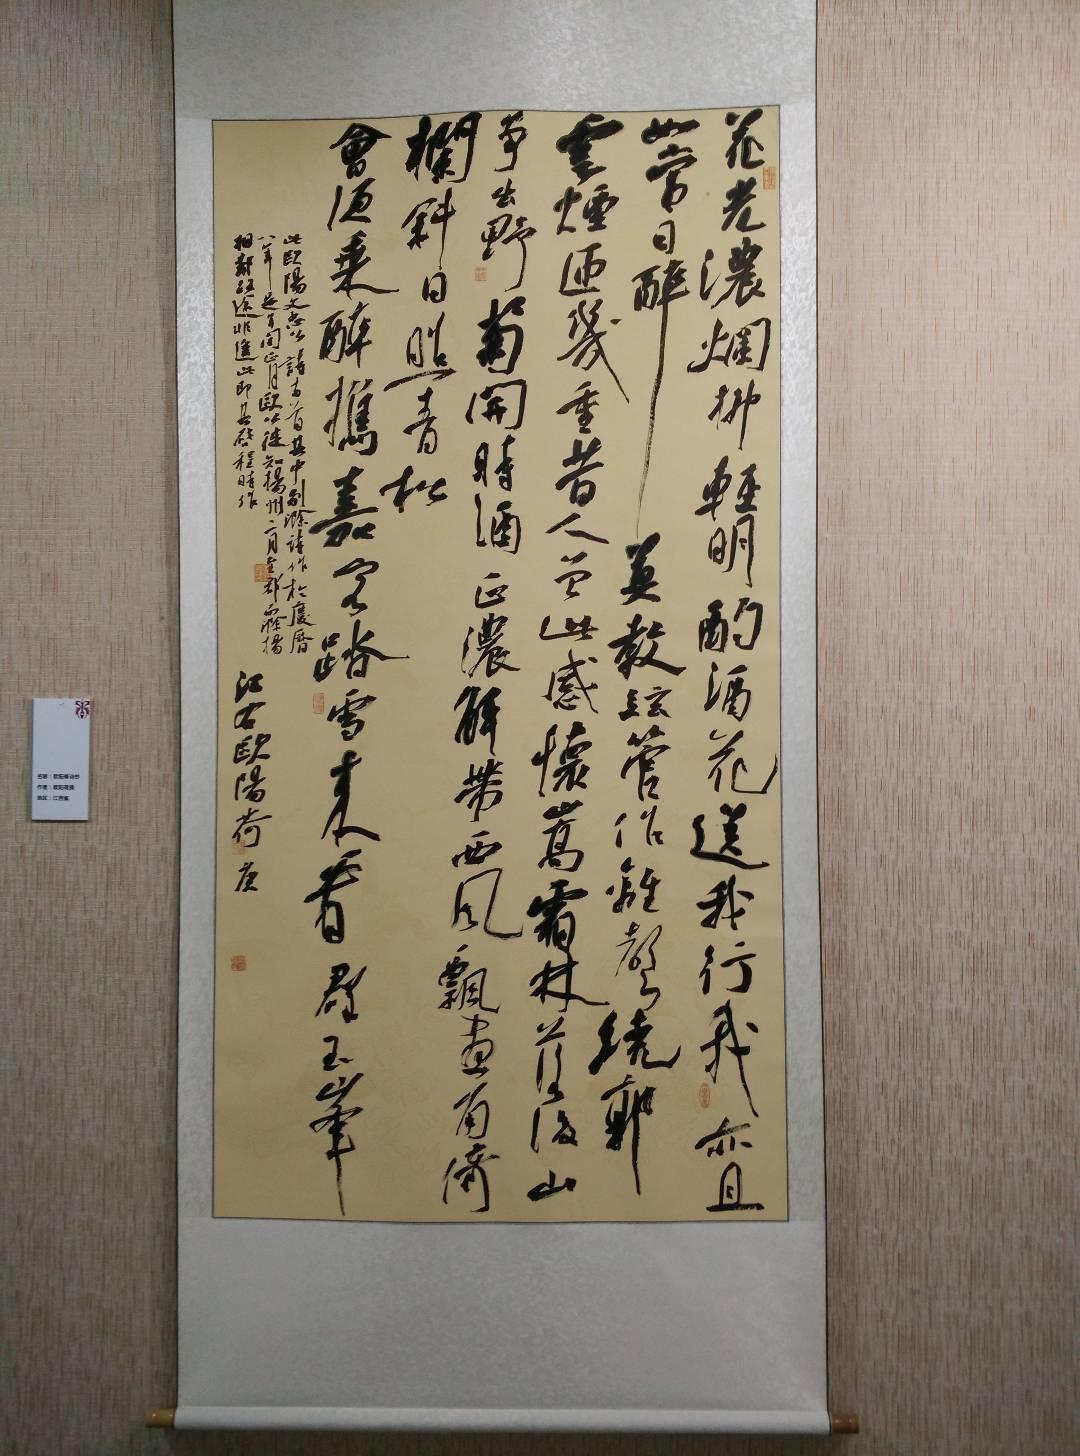 花光濃爛柳輕明酌酒花送我行我亦且
如常日醉莫教弦管作離聲繞郭
雲煙匝幾重昔人曾此感懷嵩霜林落後山
爭出野菊開時酒正濃解帶西風飄畫角倚
欄斜日照青松
會須乘醉攜嘉客踏雪來看群玉峯
此歐陽文忠公詩兩首其中別滁詩作於慶曆
八年是年閏正月歐公徙知揚州二月至郡滁揚
相鄰經途非遙此即其啟程時作
江右歐陽荷庚
名称：欧阳修诗抄
作者：欧阳荷庚
地区：江西省